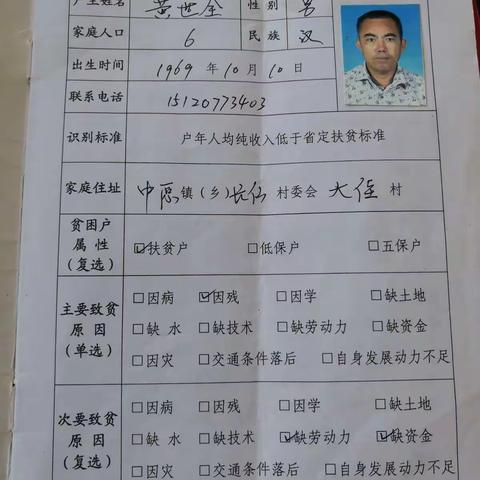 户主姓名 黄世全 性别 男
家庭人口 6 民族 汉
出生时间 1969 年 10 月 10 日
联系电话 15120773403
识别标准 户年人均纯收入低于省定扶贫标准
家庭住址 中原 镇(乡) 村委会 大 村
贫困户
属性
(复选)
☑扶贫户 □低保户 □五保户
主要致贫
原因
(单选)
□因病 ☑因残 □因学 □缺土地
□缺水 □缺技术 □缺劳动力 □缺资金
□因灾 □交通条件落后 □自身发展动力不足
次要致贫
原因
(复选)
□因病 □因残 □因学 □缺土地
□缺水 □缺技术 ☑缺劳动力 ☑缺资金
□因灾 □交通条件落后 □自身发展动力不足